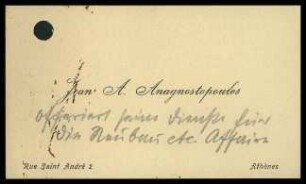 Jean A. Anagnostopoulos
offeriert seine Dienste für
die Neubau etc. Affaire
Rue Saint André 2
Athènes